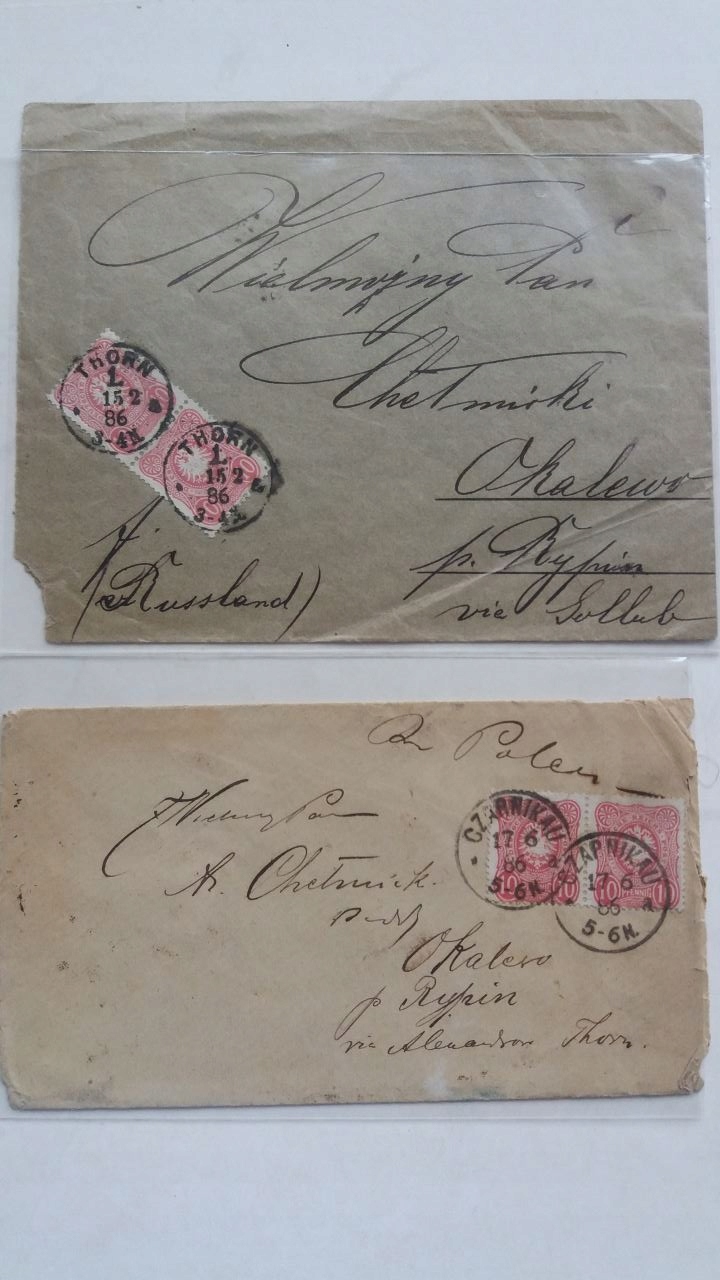 Wielmożny Pan
Chełmicki
Okalewo
p. Rypin
via Gollub
(Russland)
THORN
1
15 2
86 a
3-4N.
THORN
1
15 2
86
3-4N.
Polen
Pan
A. Chełmick.
Okalewo
p Rypin
via Alexandrow Thorn.
CZARNIKAU
17 6
86 a
5-6N.
10 10
CZARNIKAU
17 6
86 a
5-6N.
10 PFENNIG 10